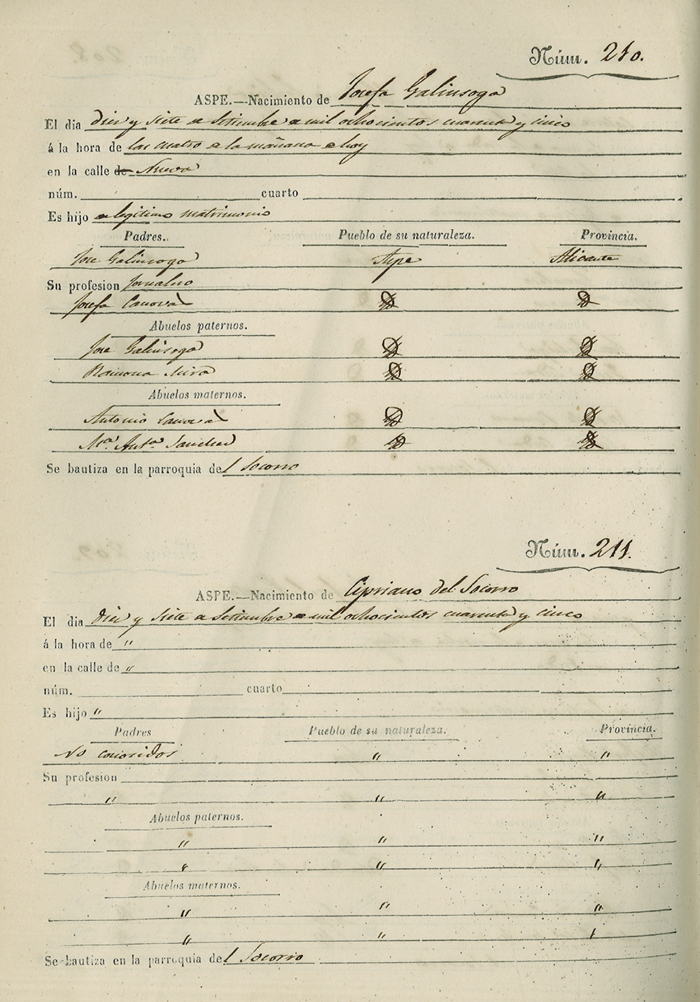 Núm. 210.
ASPE.—Nacimiento de Josefa Galinsoga
El dia diez y siete de Setiembre de mil ochocientos cuarenta y cinco
á la hora de las cuatro de la mañana de hoy
en la calle de Nueva
núm. cuarto
Es hijo de legitimo matrimonio
Padres. Pueblo de su naturaleza. Provincia.
Jose Galinsoga Aspe Alicante
Su profesion Jornalero
Josefa Canova D D
Abuelos paternos.
Jose Galinsoga D D
Ramona Mira D D
Abuelos maternos.
Antonio Canova D D
Mª Antª Sanchez D D
Se bautiza en la parroquia del Socorro
Núm. 211.
ASPE.—Nacimiento de Cipriano del Socorro
El dia diez y siete de Setiembre de mil ochocientos cuarenta y cinco
á la hora de "
en la calle de "
núm. cuarto
Es hijo "
Padres Pueblo de su naturaleza. Provincia.
No conocidos " "
Su profesion
" " "
Abuelos paternos.
" " "
" " "
Abuelos maternos.
" " "
" " "
Se bautiza en la parroquia del Socorro